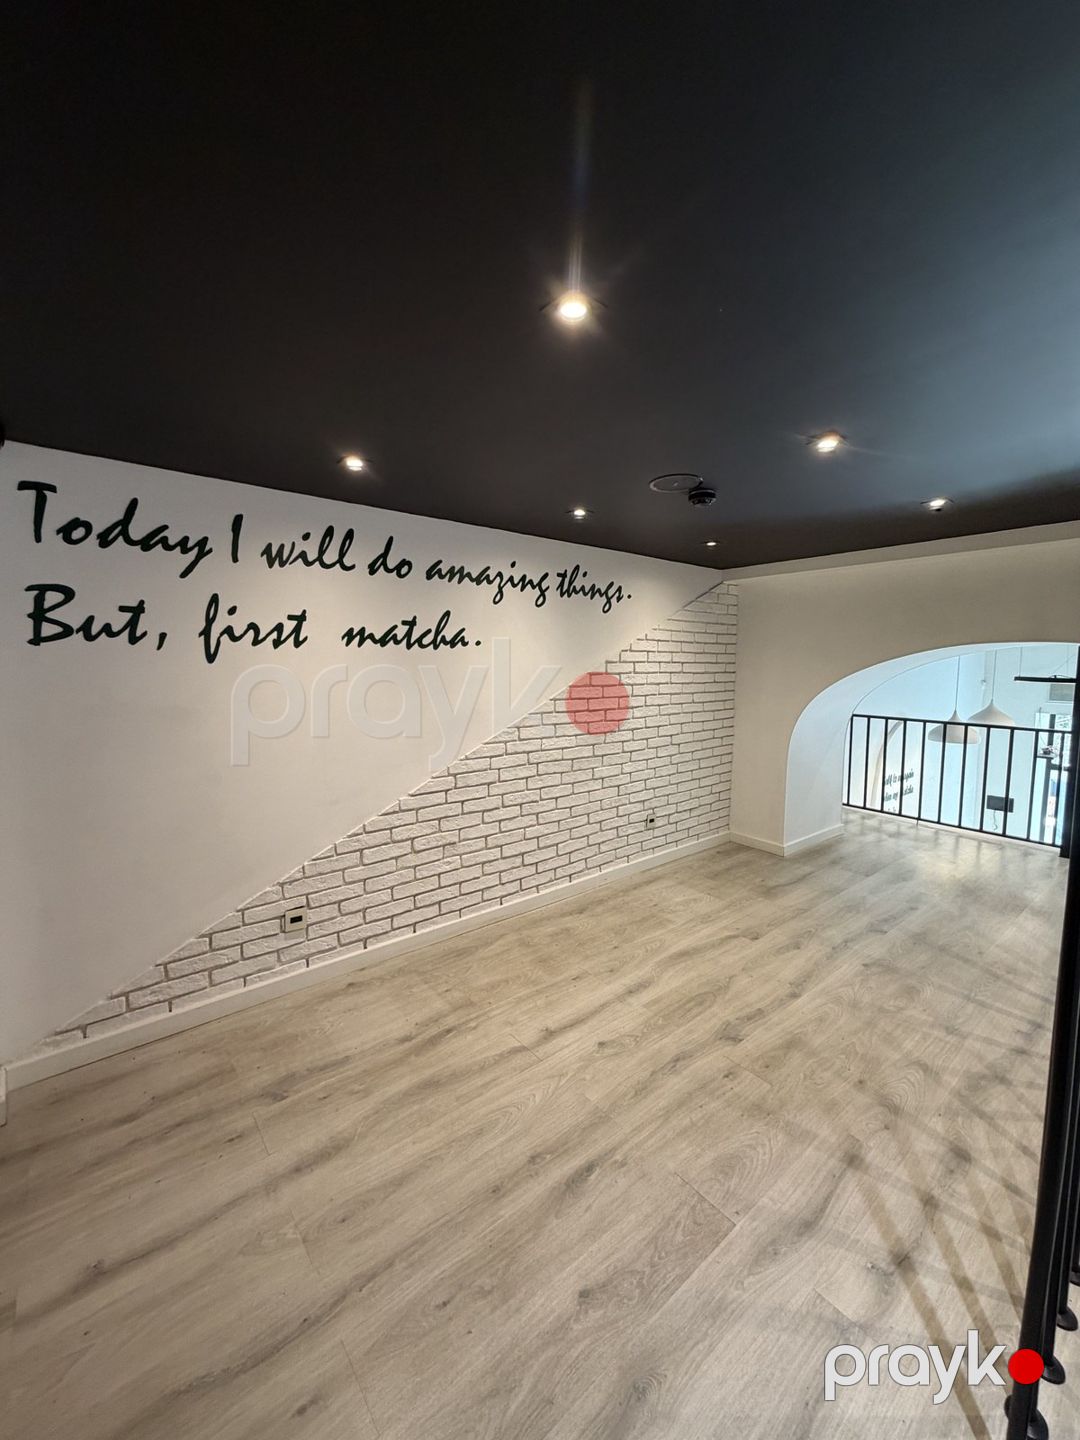 Today I will do amazing things.
But, first matcha.
prayk
prayk